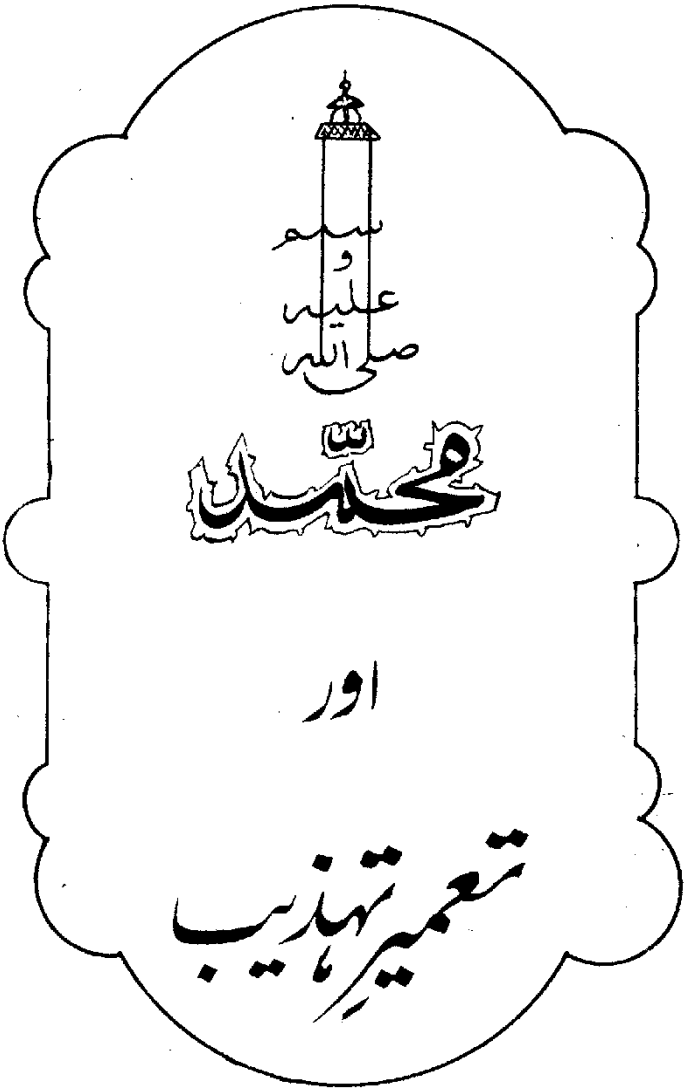 صلی اللہ
علیہ
و
سلم
محمّد
اور
تعمیرِ تہذیب